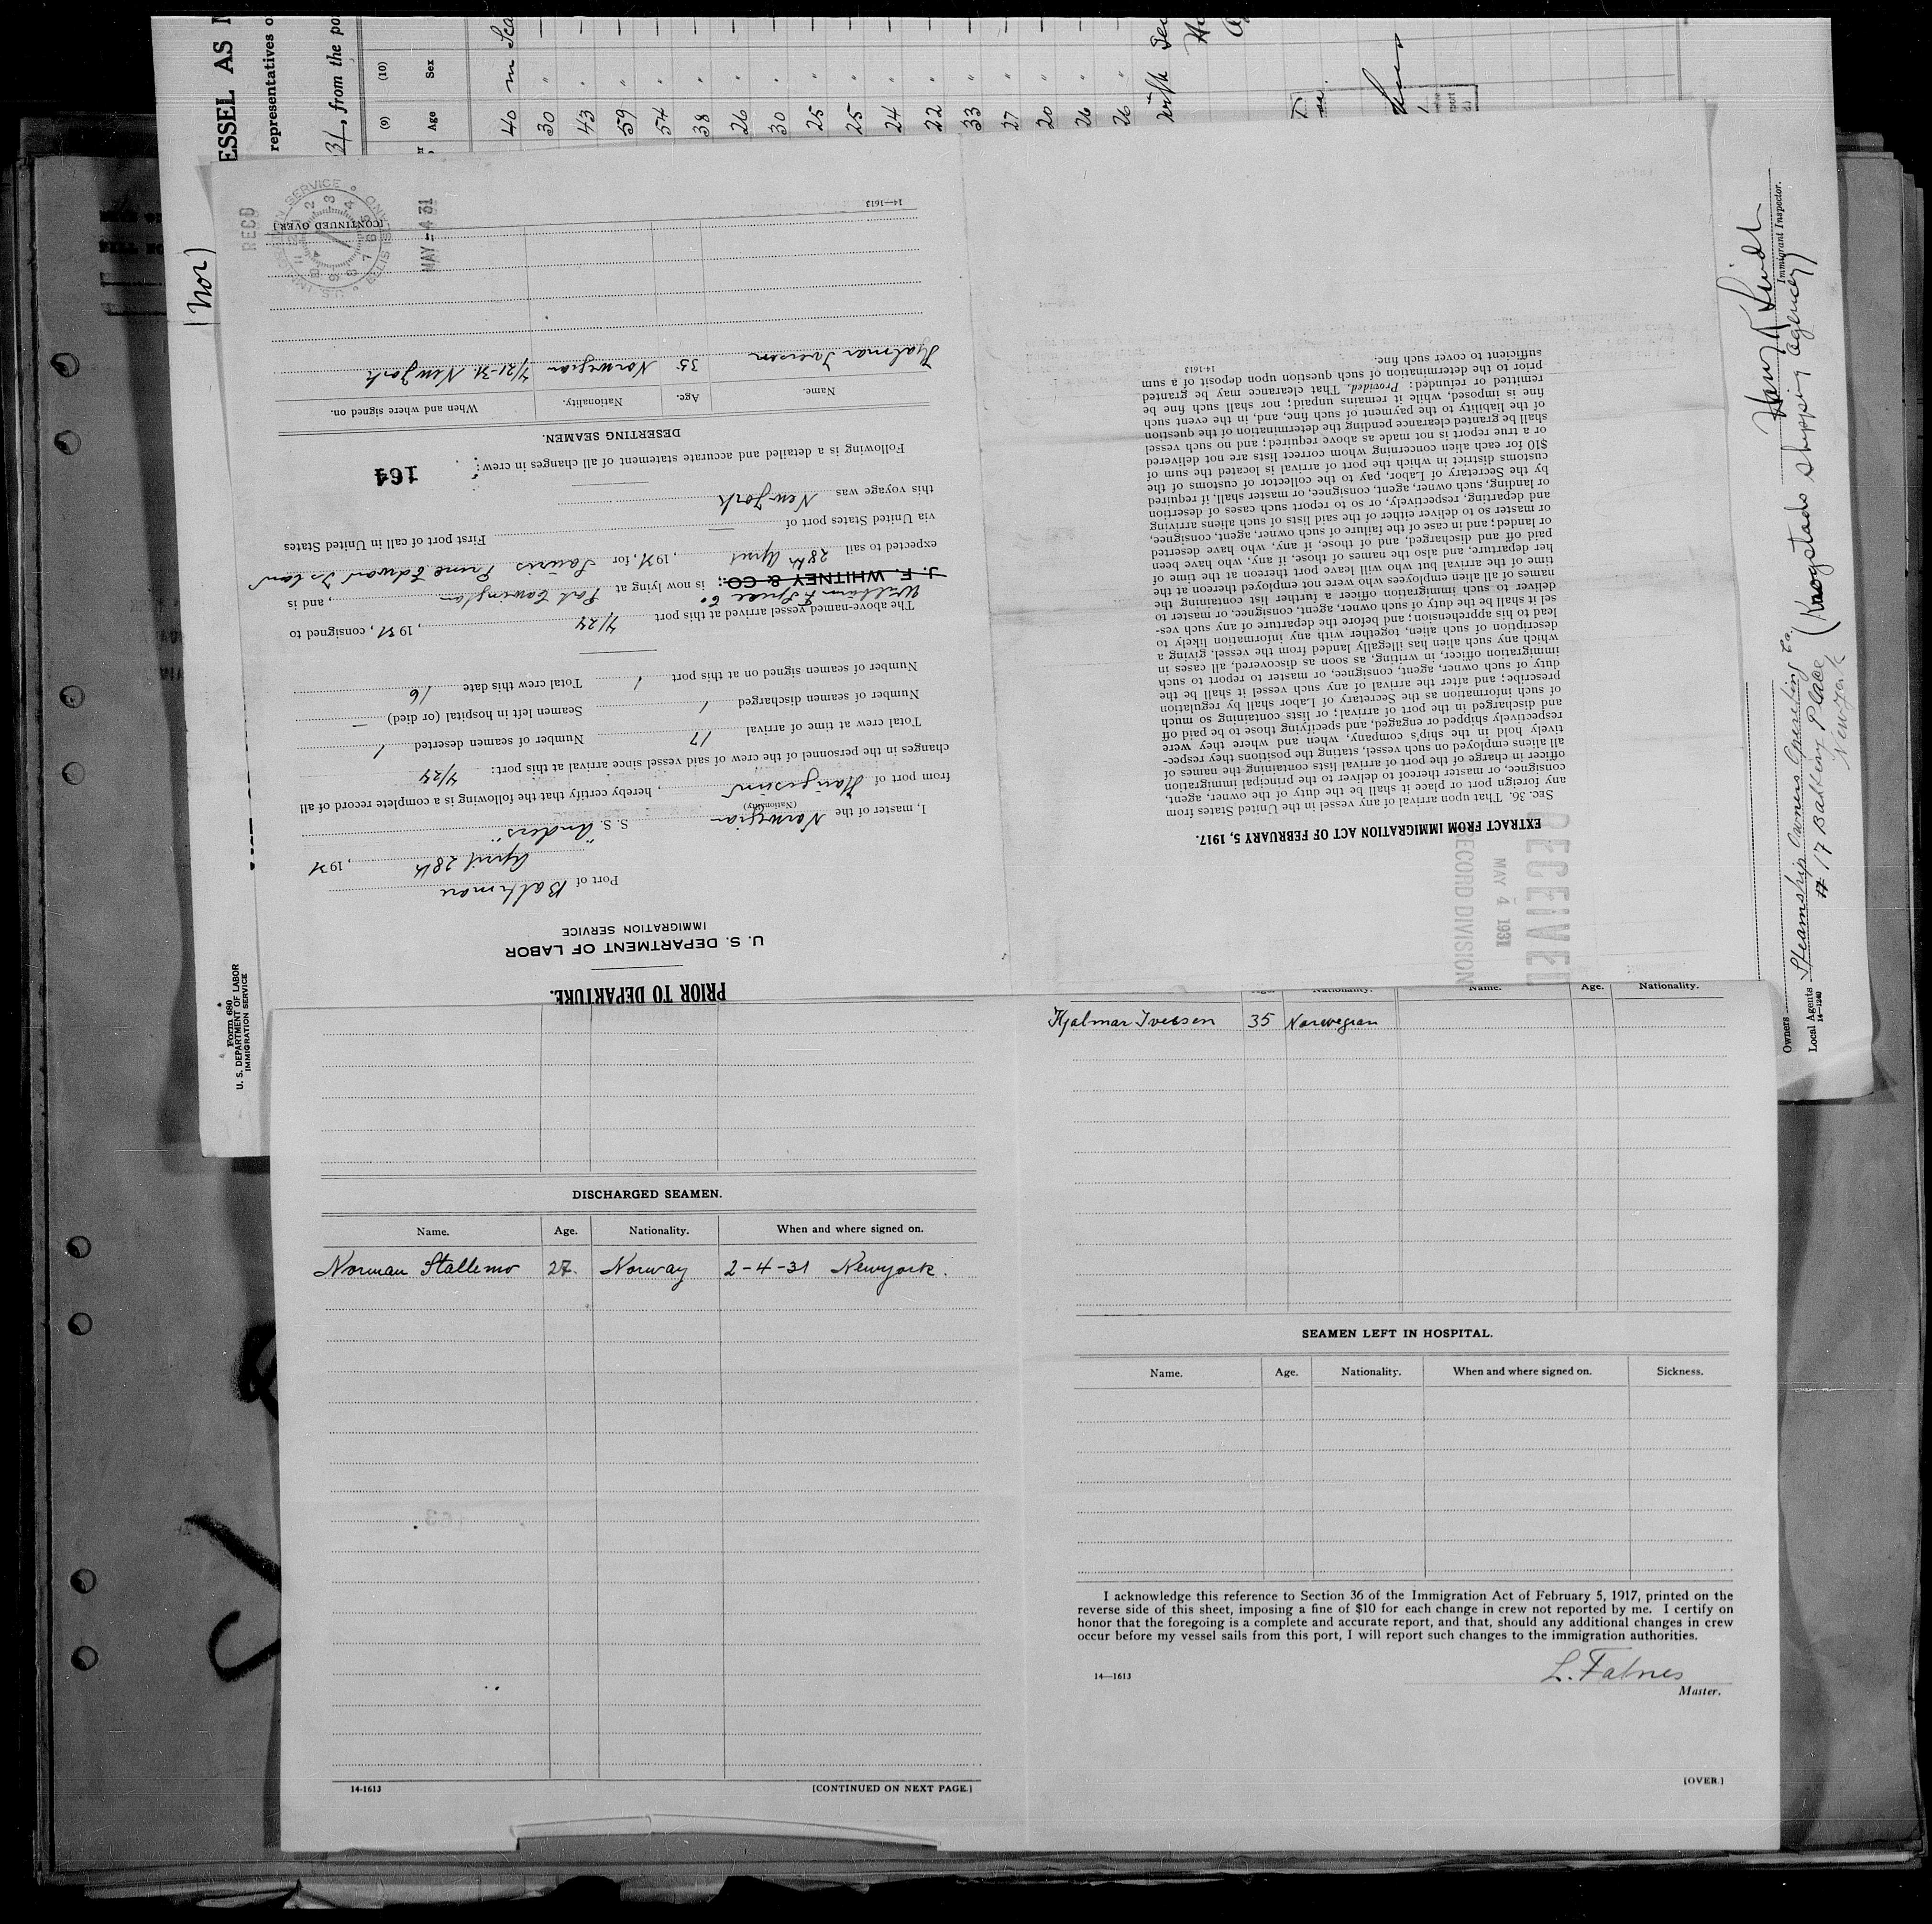 ESSEL AS
representatives o
31, from the po
(10)
Sex
(9)
Age
40
30
43
59
54
38
26
30
25
25
24
22
33
27
20
26
26
(Nor)
Form 680
U. S. DEPARTMENT OF LABOR
IMMIGRATION SERVICE
Immigrant Inspector.
Owners
Local Agents Steamship Owners Operating Co, (Krogstads Shipping Agency)
# 17 Battery Place
New York
14—1240
PRIOR TO DEPARTURE.
U. S. DEPARTMENT OF LABOR
IMMIGRATION SERVICE
Port of Baltimore
April 28th, 1931
I, master of the Norwegian S. S. "Anders"
(Nationality)
from port of , hereby certify that the following is a complete record of all
changes in the personnel of the crew of said vessel since arrival at this port: 4/24
Total crew at time of arrival 17 Number of seamen deserted 1
Number of seamen discharged 1 Seamen left in hospital (or died) —
Number of seamen signed on at this port 1 Total crew this date 16
The above-named vessel arrived at this port 4/24, 1931, consigned to
William F Spice Co
J. F. WHITNEY & CO. is now lying at Port Covington, and is
expected to sail 28th April, 1931, for Souris Prince Edward Island
via United States port of — First port of call in United States
this voyage was New York
Following is a detailed and accurate statement of all changes in crew:
164
DESERTING SEAMEN.
Name. Age. Nationality. When and where signed on.
Hjalmar Iversen 35 Norwegian 4/21-31 New York
14—1613
[CONTINUED OVER]
U. S. IMMIGRATION SERVICE ELLIS ISLAND
REC'D
MAY - 4 31
EXTRACT FROM IMMIGRATION ACT OF FEBRUARY 5, 1917.
SEC. 36. That upon arrival of any vessel in the United States from
any foreign port or place it shall be the duty of the owner, agent,
consignee, or master thereof to deliver to the principal immigration
officer in charge of the port of arrival lists containing the names of
all aliens employed on such vessel, stating the positions they respec-
tively hold in the ship's company, when and where they were
respectively shipped or engaged, and specifying those to be paid off
and discharged in the port of arrival; or lists containing so much
of such information as the Secretary of Labor shall by regulation
prescribe; and after the arrival of any such vessel it shall be the
duty of such owner, agent, consignee, or master to report to such
immigration officer, in writing, as soon as discovered, all cases in
which any such alien has illegally landed from the vessel, giving a
description of such alien, together with any information likely to
lead to his apprehension; and before the departure of any such ves-
sel it shall be the duty of such owner, agent, consignee, or master to
deliver to such immigration officer a further list containing the
names of all alien employees who were not employed thereon at the
time of the arrival but who will leave port thereon at the time of
her departure, and also the names of those, if any, who have been
paid off and discharged, and of those, if any, who have deserted
or landed; and in case of the failure of such owner, agent, consignee,
or master so to deliver either of the said lists of such aliens arriving
and departing, respectively, or so to report such cases of desertion
or landing, such owner, agent, consignee, or master shall, if required
by the Secretary of Labor, pay to the collector of customs of the
customs district in which the port of arrival is located the sum of
$10 for each alien concerning whom correct lists are not delivered
or a true report is not made as above required; and no such vessel
shall be granted clearance pending the determination of the question
of the liability to the payment of such fine, and, in the event such
fine is imposed, while it remains unpaid; nor shall such fine be
remitted or refunded: Provided, That clearance may be granted
prior to the determination of such question upon deposit of a sum
sufficient to cover such fine.
14—1613
RECEIVED
MAY 4 1931
RECORD DIVISION
DISCHARGED SEAMEN.
Name. Age. Nationality. When and where signed on.
Norman Stallemo 27. Norway 2-4-31 Newyork.
14-1613
[CONTINUED ON NEXT PAGE.]
Age. Nationality. Name. Age. Nationality.
Hjalmar Iversen 35 Norwegian
SEAMEN LEFT IN HOSPITAL.
Name. Age. Nationality. When and where signed on. Sickness.
I acknowledge this reference to Section 36 of the Immigration Act of February 5, 1917, printed on the
reverse side of this sheet, imposing a fine of $10 for each change in crew not reported by me. I certify on
honor that the foregoing is a complete and accurate report, and that, should any additional changes in crew
occur before my vessel sails from this port, I will report such changes to the immigration authorities.
L. Falnes
Master.
14—1613
[OVER.]